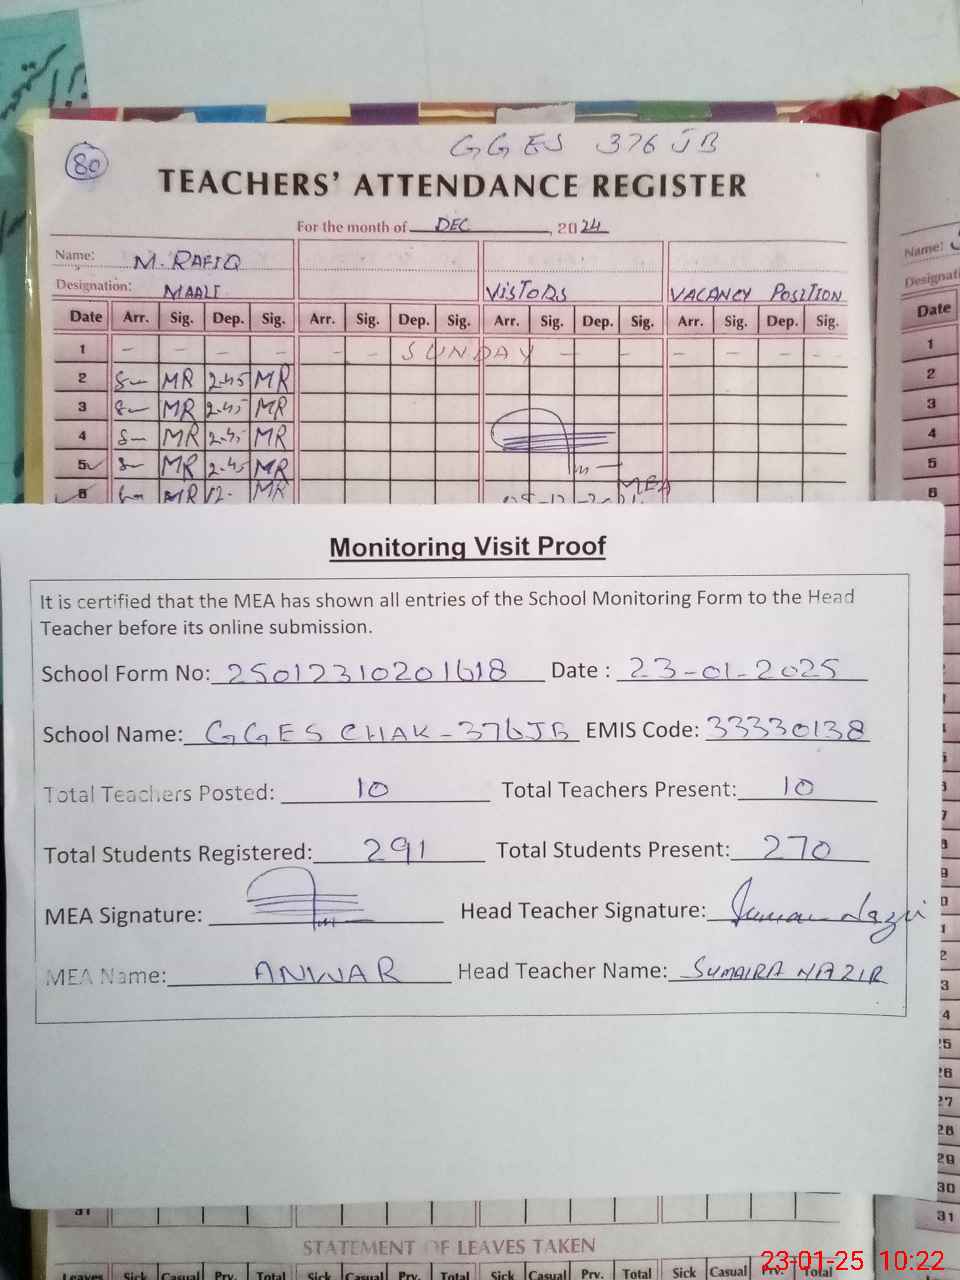 GGES 376 JB
80
TEACHERS' ATTENDANCE REGISTER
For the month of DEC, 2024
Name: M. RAFIQ
Designation: MAALI VISTORS VACANCY POSITION
Date Arr. Sig. Dep. Sig. Arr. Sig. Dep. Sig. Arr. Sig. Dep. Sig. Arr. Sig. Dep. Sig.
1 SUNDAY
2 8 MR 2.45 MR
3 8 MR 2.45 MR
4 8 MR 2.45 MR
5 8 MR 2.45 MR
6 MR 12. MR MEA
Name:
Date
1
2
3
4
5
6
Monitoring Visit Proof
It is certified that the MEA has shown all entries of the School Monitoring Form to the Head
Teacher before its online submission.
School Form No: 25012310201618 Date : 23-01-2025
School Name: GGES CHAK-376JB EMIS Code: 33330138
Total Teachers Posted: 10 Total Teachers Present: 10
Total Students Registered: 291 Total Students Present: 270
MEA Signature: Head Teacher Signature:
MEA Name: ANWAR Head Teacher Name: SUMAIRA NAZIR
31
STATEMENT OF LEAVES TAKEN
Leaves Sick Casual Prv. Total Sick Casual Prv. Total Sick Casual Prv. Total Sick Casual Prv. Total
30
31
23-01-25 10:22